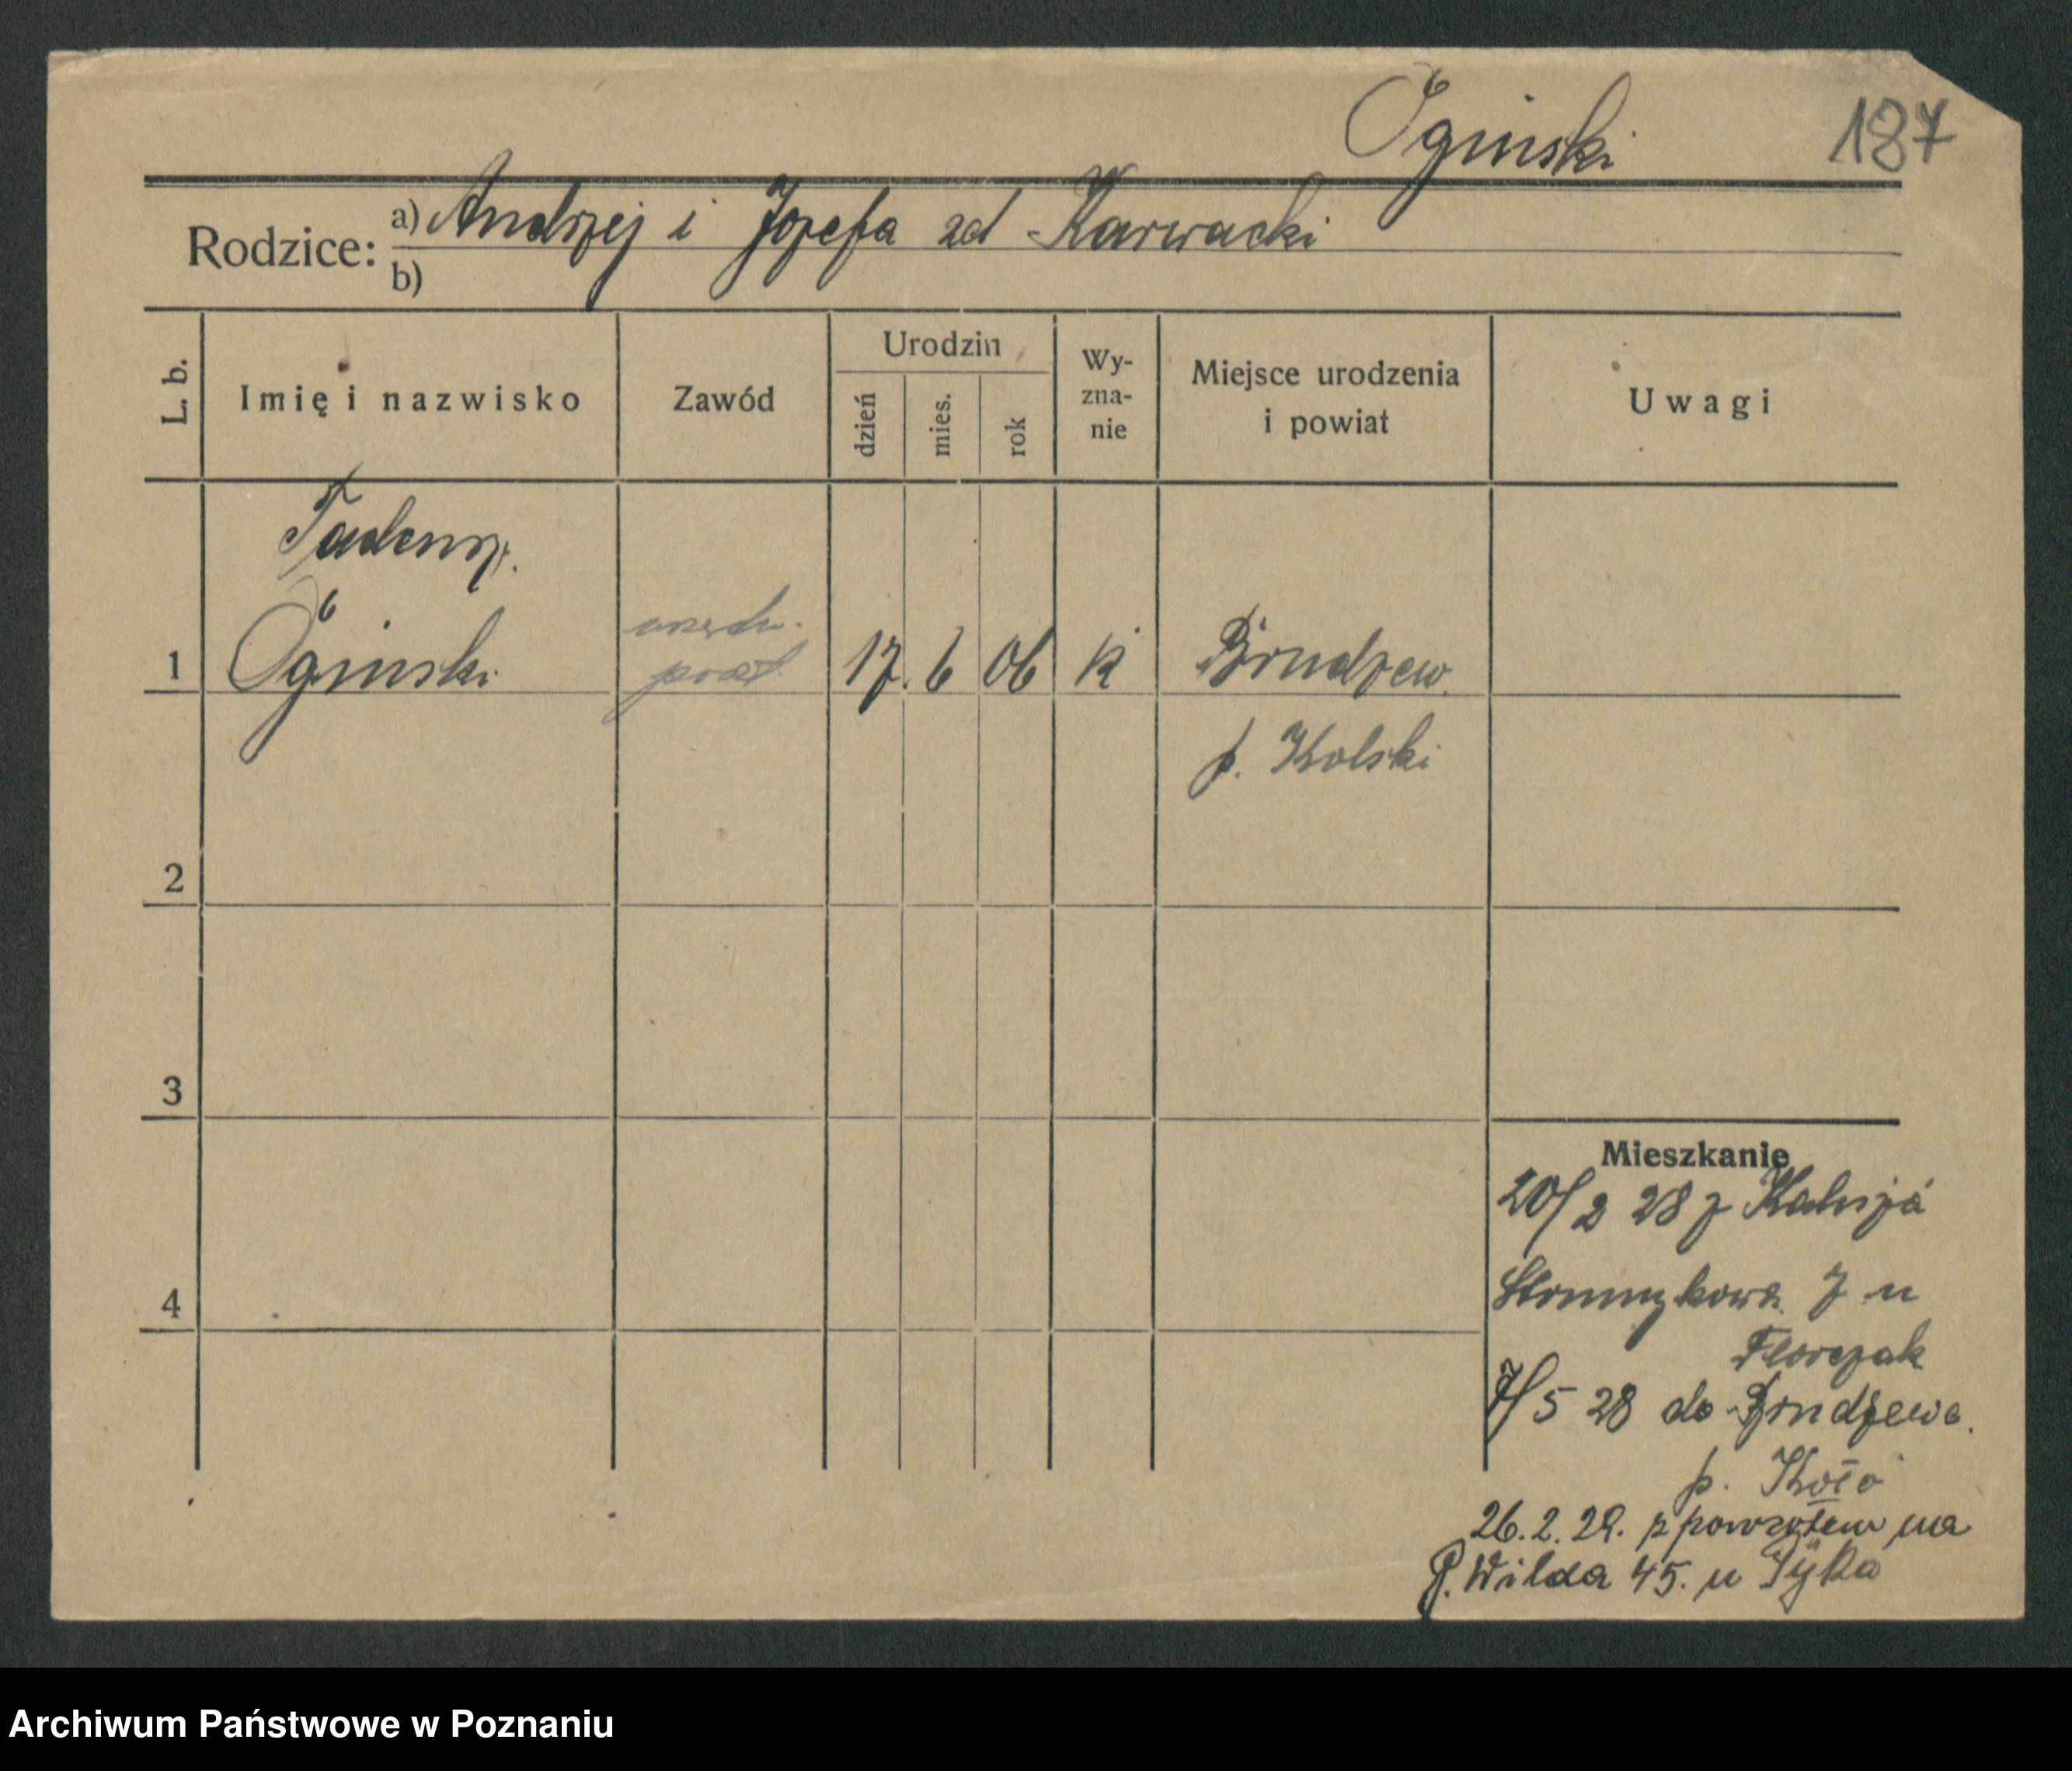 Oginski
187
Rodzice: a) Andrzej i Jozefa zd Karwacki
b)
L. b.
Imię i nazwisko
Zawód
Urodzin
dzień
mies.
rok
Wy-
zna-
nie
Miejsce urodzenia
i powiat
Uwagi
Tadeusz.
1 Oginski
urzędn.
poczt.
17. 6 06 K Brudzew.
p. Kolski
2
3
4
Mieszkanie
20/2 28 z Kalisza
Strumykowa 7 u
Florczak
7/5 28 do Brudzewa.
p. Koło
26.2.29. z powrotem na
G. Wilda 45. u